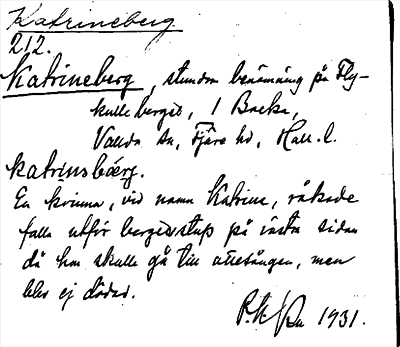 Katrineberg
212.
Katrineberg, stundom benämning på Fly-
kullebergid, 1 Backa,
Vallda sn, Fjäre hd, Hall. l.
katrinsbáerg.
En kvinna, vid namn Katrine, råkade
falla utför bergidsstup på västra sidan
då hon skulle gå till ottesången, men
blev ej dödad.
1931.